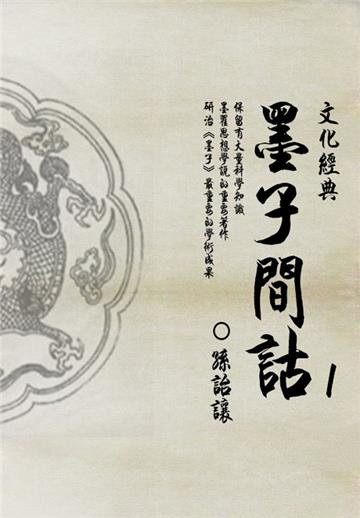 文化經典
墨子間詁 1
保留有大量科學知識
墨翟思想學說的重要著作
研治《墨子》最重要的學術成果
○ 孫詒讓